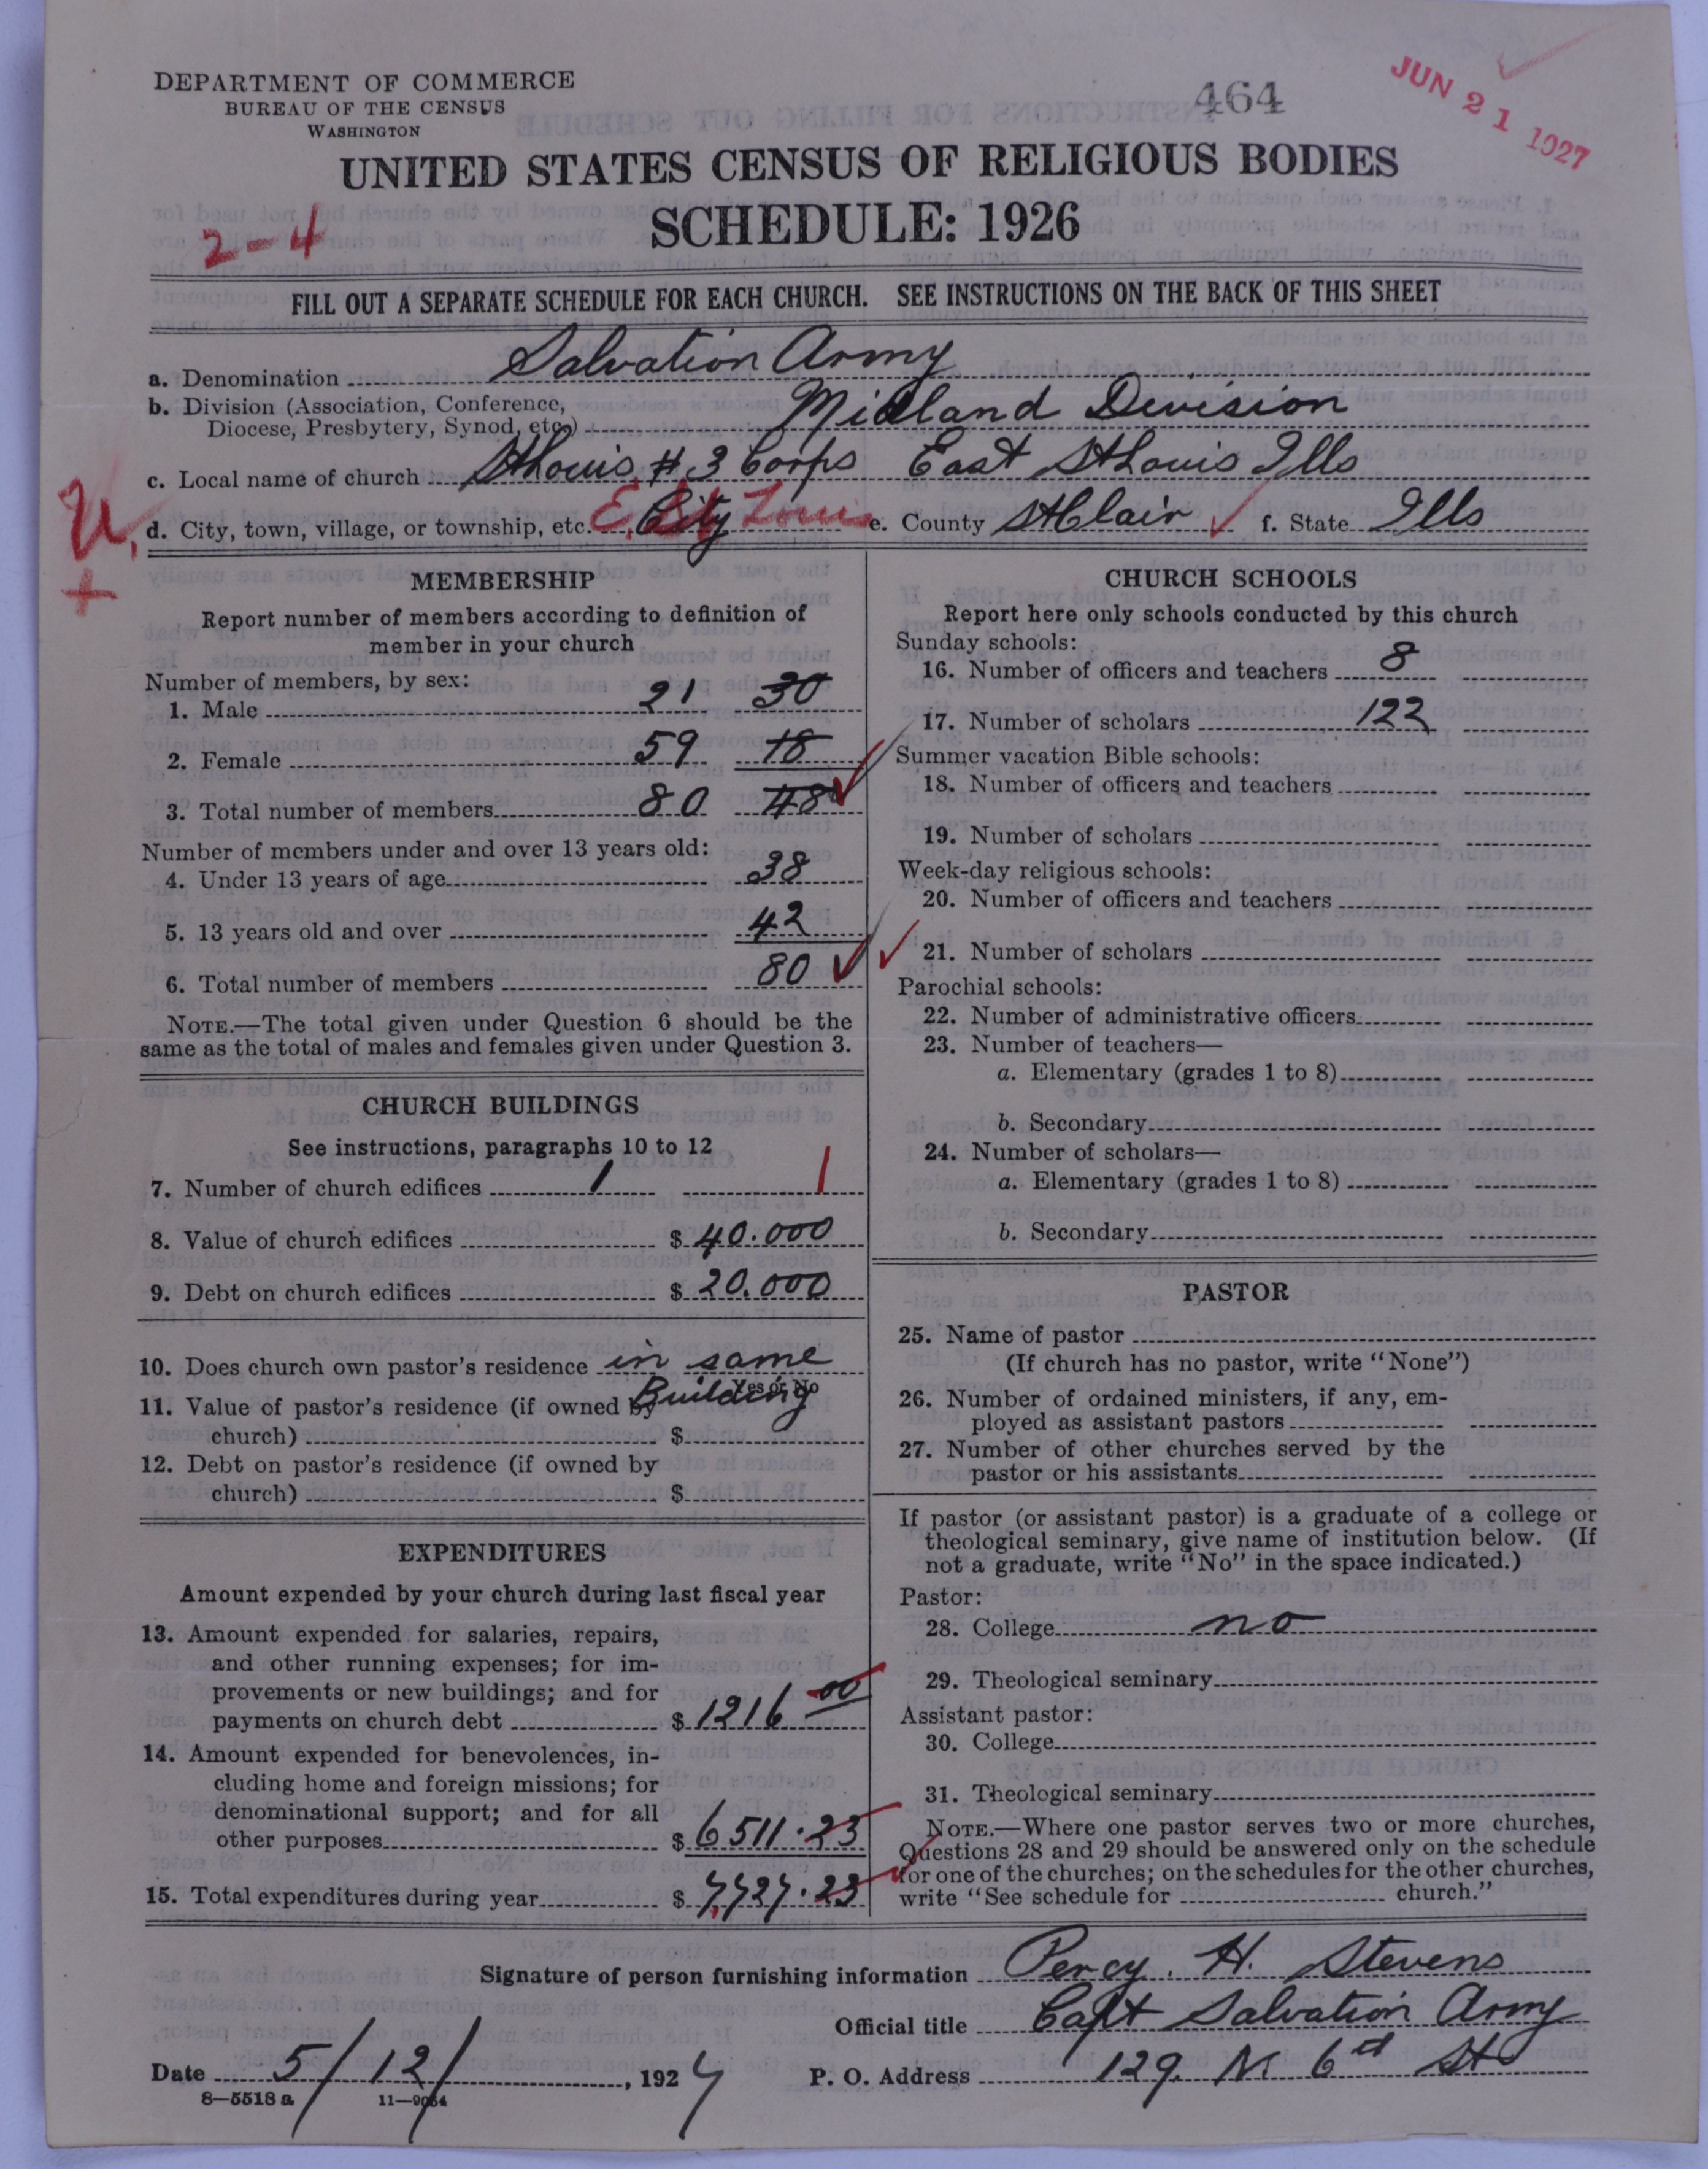 DEPARTMENT OF COMMERCE
BUREAU OF THE CENSUS
WASHINGTON
464
JUN 21 1927
UNITED STATES CENSUS OF RELIGIOUS BODIES
SCHEDULE: 1926
2-4
FILL OUT A SEPARATE SCHEDULE FOR EACH CHURCH. SEE INSTRUCTIONS ON THE BACK OF THIS SHEET
a. Denomination Salvation Army
b. Division (Association, Conference,
Diocese, Presbytery, Synod, etc.) Midland Division
c. Local name of church St Louis #3 Corps East St Louis Ills
d. City, town, village, or township, etc. City E. St. Louis e. County St Clair f. State Ills
U,
+
MEMBERSHIP
Report number of members according to definition of
member in your church
Number of members, by sex:
1. Male 21 30
2. Female 59 18
3. Total number of members 80 48
Number of members under and over 13 years old:
4. Under 13 years of age 38
5. 13 years old and over 42
6. Total number of members 80
NOTE.—The total given under Question 6 should be the
same as the total of males and females given under Question 3.
CHURCH BUILDINGS
See instructions, paragraphs 10 to 12
7. Number of church edifices 1 1
8. Value of church edifices $ 40.000
9. Debt on church edifices $ 20.000
10. Does church own pastor's residence in same
Building
Yes or No
11. Value of pastor's residence (if owned by
church) $
12. Debt on pastor's residence (if owned by
church) $
EXPENDITURES
Amount expended by your church during last fiscal year
13. Amount expended for salaries, repairs,
and other running expenses; for im-
provements or new buildings; and for
payments on church debt $ 1216 00
14. Amount expended for benevolences, in-
cluding home and foreign missions; for
denominational support; and for all
other purposes $ 6511.23
15. Total expenditures during year $ 7,727.23
CHURCH SCHOOLS
Report here only schools conducted by this church
Sunday schools:
16. Number of officers and teachers 8
17. Number of scholars 122
Summer vacation Bible schools:
18. Number of officers and teachers
19. Number of scholars
Week-day religious schools:
20. Number of officers and teachers
21. Number of scholars
Parochial schools:
22. Number of administrative officers
23. Number of teachers—
a. Elementary (grades 1 to 8)
b. Secondary
24. Number of scholars—
a. Elementary (grades 1 to 8)
b. Secondary
PASTOR
25. Name of pastor
(If church has no pastor, write "None")
26. Number of ordained ministers, if any, em-
ployed as assistant pastors
27. Number of other churches served by the
pastor or his assistants
If pastor (or assistant pastor) is a graduate of a college or
theological seminary, give name of institution below. (If
not a graduate, write "No" in the space indicated.)
Pastor:
28. College no
29. Theological seminary
Assistant pastor:
30. College
31. Theological seminary
NOTE.—Where one pastor serves two or more churches,
Questions 28 and 29 should be answered only on the schedule
for one of the churches; on the schedules for the other churches,
write "See schedule for church."
Signature of person furnishing information Percy. H. Stevens
Official title Capt Salvation Army
Date 5/12/, 1927 P. O. Address 129. N 6th St
8—5518 a 11—9064